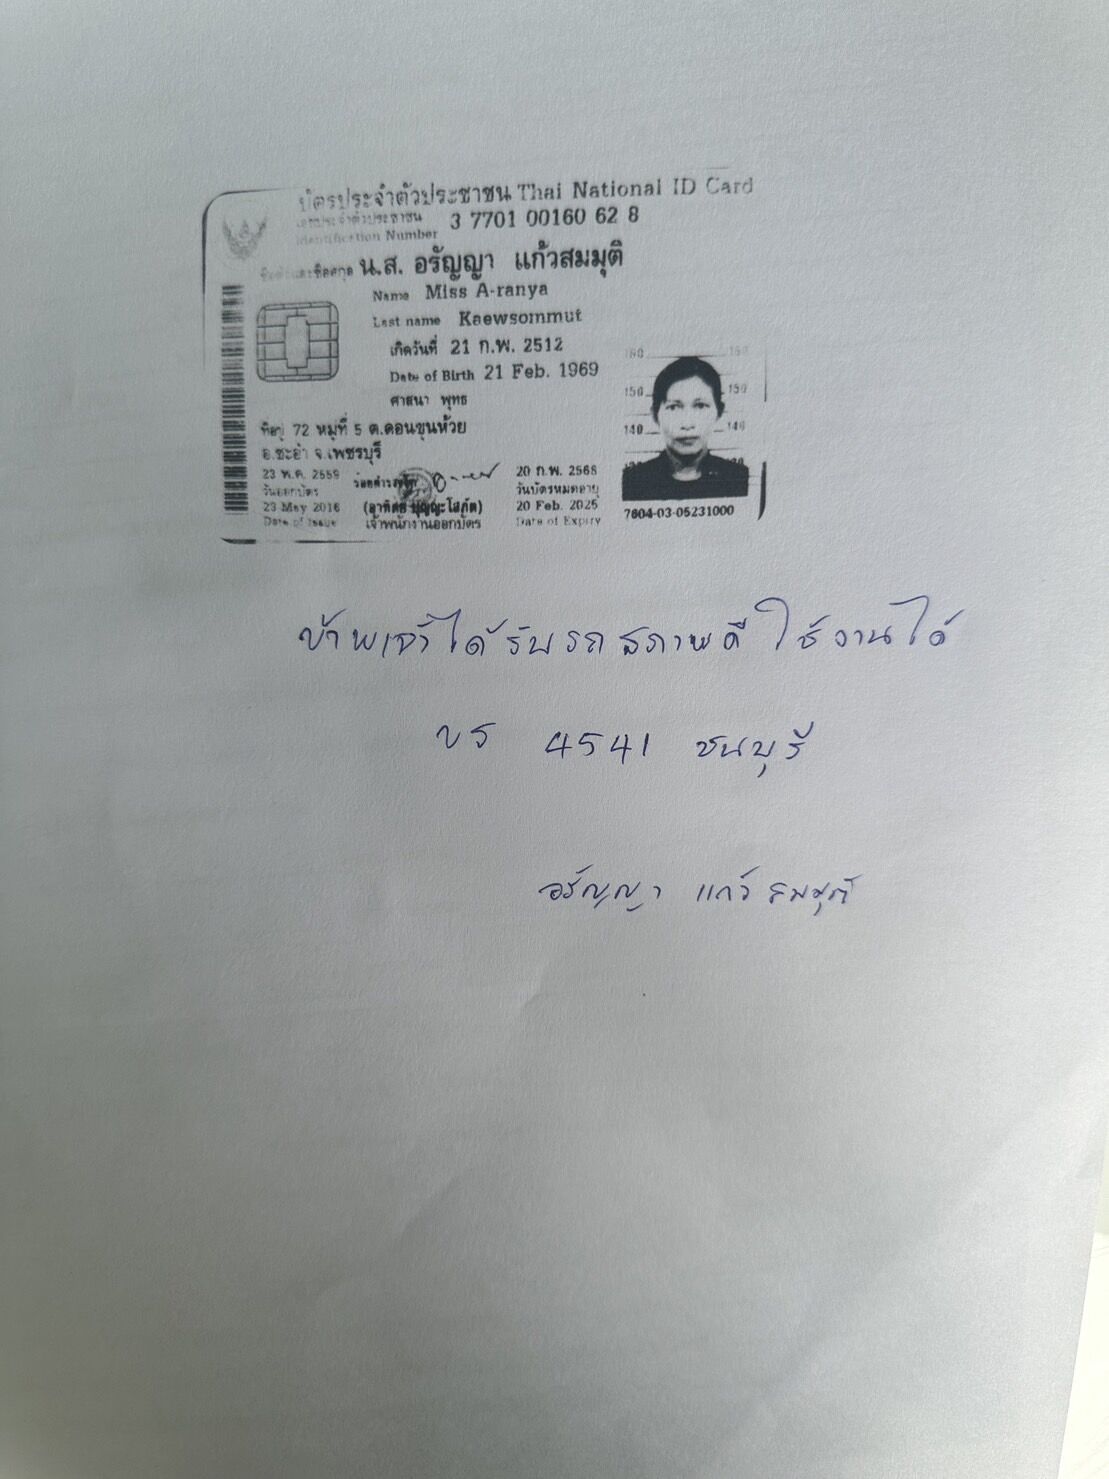 บัตรประจำตัวประชาชน Thai National ID Card
เลขประจำตัวประชาชน 3 7701 00160 62 8
Identification Number
ชื่อตัวและชื่อสกุล น.ส. อรัญญา แก้วสมมุติ
Name Miss A-ranya
Last name Kaewsommut
เกิดวันที่ 21 ก.พ. 2512
Date of Birth 21 Feb. 1969
ศาสนา พุทธ
ที่อยู่ 72 หมู่ที่ 5 ต.ดอนขุนห้วย
อ.ชะอำ จ.เพชรบุรี
23 พ.ค. 2559
วันออกบัตร
23 May 2016
Date of Issue
เจ้าพนักงานออกบัตร
20 ก.พ. 2568
วันบัตรหมดอายุ
20 Feb. 2025
Date of Expiry
150 150
140 140
7604-03-05231000
ข้าพเจ้าได้รับรถสภาพดี ใช้งานได้
ขร 4541 ชนบุรี
อรัญญา แก้วสมมุติ